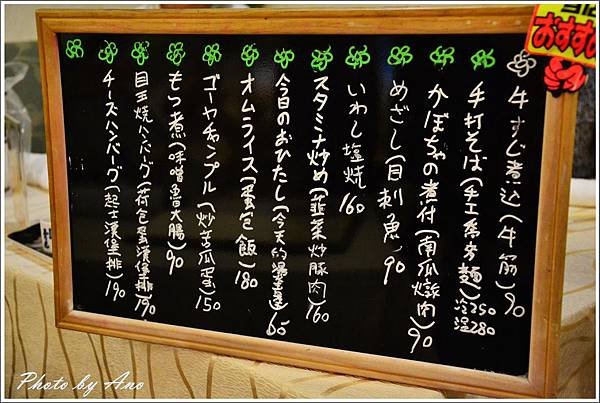 おすすめ
牛すじ煮込(牛筋)90
手打そば(手工蕎麥麵)冷250 溫280
かぼちゃの煮付(南瓜燉肉)90
めざし(目刺魚)90
いわし塩焼 160
スタミナ炒め(韮菜炒豚肉)160
今日のおひたし(今天的燙青菜)65
オムライス(蛋包飯)180
ゴーヤチャンプル(炒苦瓜蛋)150
もつ煮(味噌魯大腸)90
目玉焼ハンバーグ(荷包蛋漢堡排)190
チーズハンバーグ(起士漢堡排)190
Photo by Ano